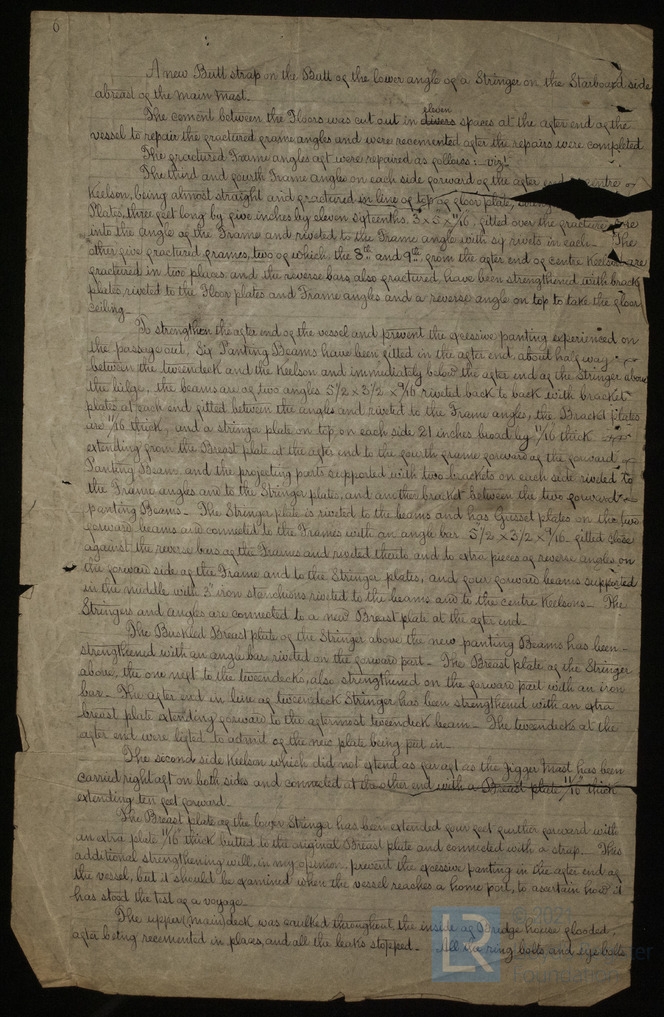 6
A new Butt strap on the Butt of the lower angle of a Stringer on the Starboard side
abreast of the main mast.
The cement between the Floors was cut out in eleven divers spaces at the after end of the
vessel to repair the fractured frame angles and were recemented after the repairs were completed
The fractured Frame angles aft were repaired as follows :- viz!
The third and fourth Frame angles on each side forward of the after end centre
Keelson, being almost straight and fractured in line of top of floor plate,
Plates, three feet long by five inches by eleven sixteenths, 3 x 5 x 11/16, fitted over the fracture
into the angle of the Frame and riveted to the Frame angle with six rivets in each - The
other five fractured frames, two of which, the 8th and 9th, from the after end of centre Keelson are
fractured in two places, and the reverse bars also fractured, have been strengthened with brack
plates riveted to the Floor plates and Frame angles and a reverse angle on top to take the floor
ceiling -
To strengthen the after end of the vessel and prevent the excessive panting experienced on
the passage out, Six Panting Beams have been fitted in the after end, about half way
between the tweendeck and the Keelson and immediately below the after end of the Stringer above
the bilge, the beams are of two angles 5 1/2 x 3 1/2 x 9/16 riveted back to back with bracket
plates at each end fitted between the angles and rivetd to the Frame angles, the Brackt plates
are 11/16 thick, and a stringer plate on top, on each side 21 inches broad by 11/16 thick
extending from the Breast plate at the after end to the fourth frame forward of the forward
Panting Beam, and the projecting parts supported with two brackets on each side riveted to
the Frame angles and to the Stringer plate, and another bracket between the two forward
panting Beams - The Stringer plate is riveted to the beams and has Gusset plates on the two
forward beams and connected to the Frames with an angle bar 5 1/2 x 3 1/2 x 9/16 fitted close
against the reverse bars of the Frames and riveted thereto and to extra pieces of reverse angles on
the forward side of the Frame and to the Stringer plates, and four forward beams supported
in the middle with 3" iron stanchions riveted to the beams and to the centre Keelsons - The
Stringers and angles are connected to a new Breast plate at the after end -
The Buckled Breast plate of the Stringer above the new panting Beams has been -
strengthened with an angle bar riveted on the forward part - The Breast plate of the Stringer
above, the one next to the tweendecks, also strengthened on the forward part with an iron
bar - The after end in line of tweendeck Stringer has been strengthened with an extra
breast plate extending forward to the aftermost tweendeck beam - The tweendecks at the
after end were lifted to admit of the new plate being put in -
The second side Keelson which did not extend as far aft as the Jigger Mast has been
carried right aft on both sides and connected at the after end with a Breast plate 11/16" thick
extending ten feet forward -
The Breast plate of the lower Stringer has been extended four feet further forward with
an extra plate 11/16" thick butted to the original Breast plate and connected with a strap - This
additional strengthening will, in my opinion, prevent the excessive panting in the after end of
the vessel, but it should be examined when the vessel reaches a home port, to ascertain how it
has stood the test of a voyage.
The upper (main) deck was caulked throughout, the inside of Bridge house flooded,
after being recemented in places, and all the leaks stopped - All the ring bolts, and eye bolts
LR © 2021
Lloyd's Register
Foundation